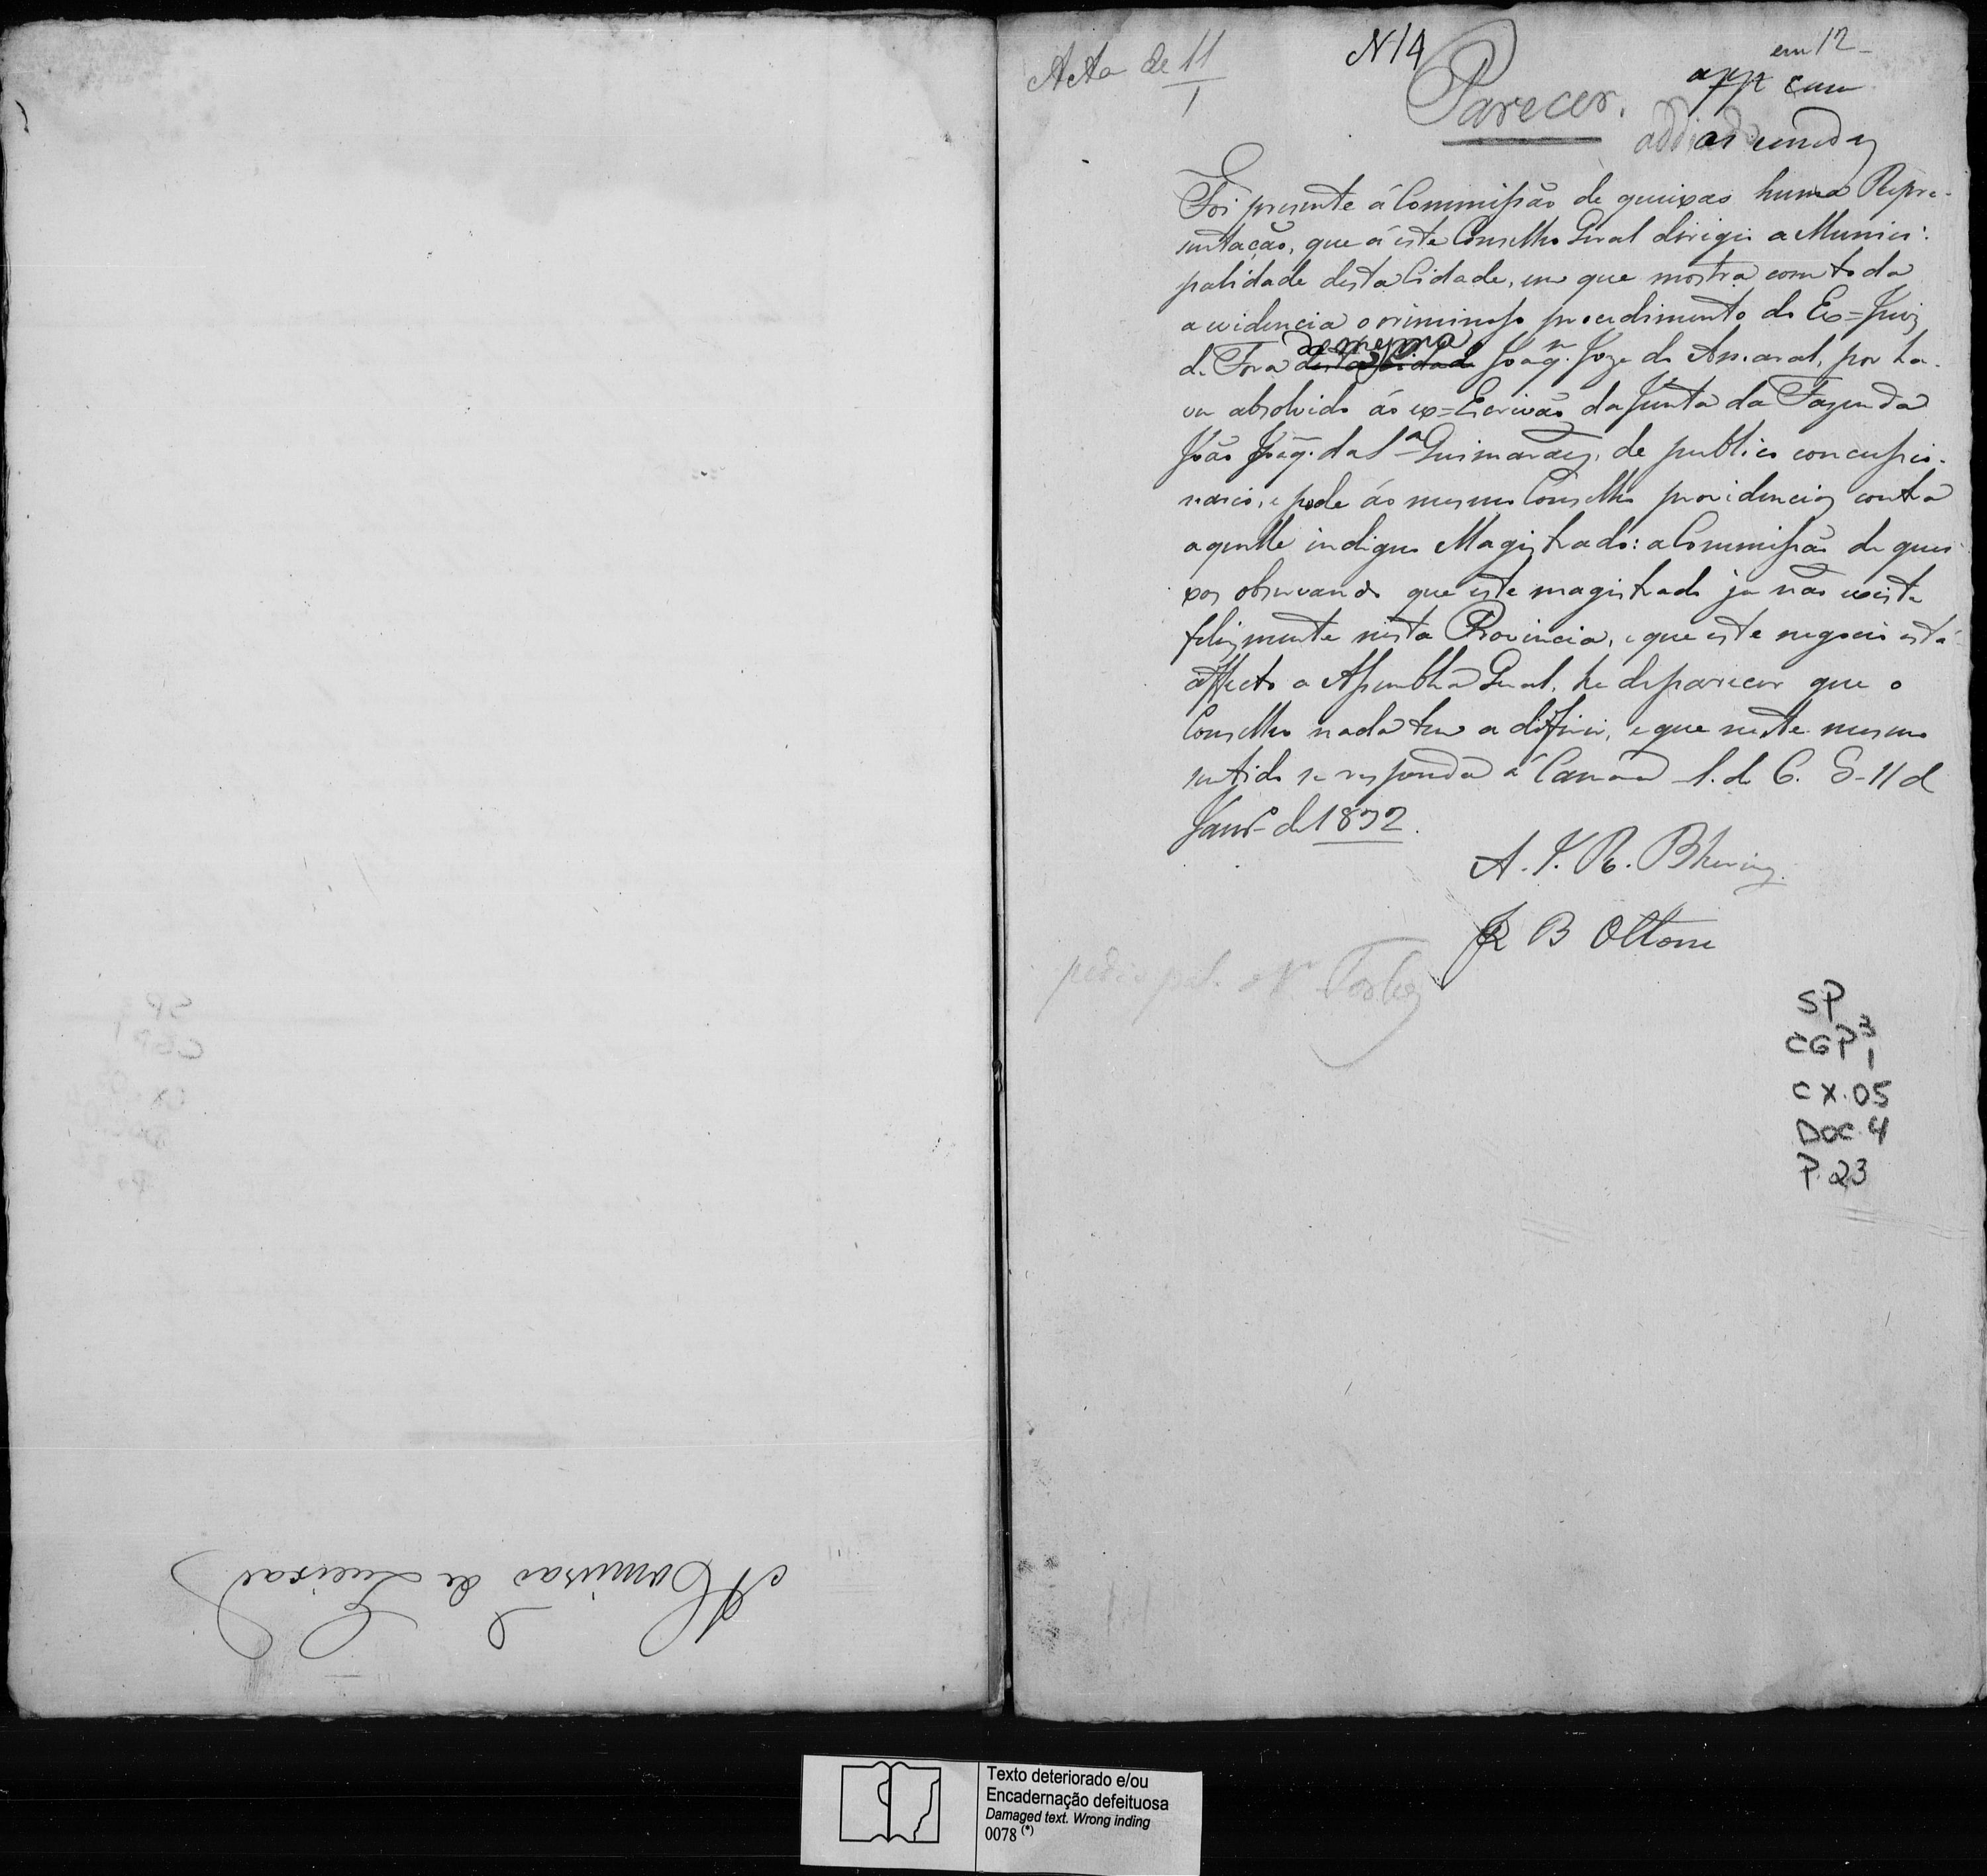 A Comissão de Queixas
Acta de 11
1
N 14
em 12
app com
as emendas
Parecer.
Foi presente á Commissão de queixas huma Repre-
sentação, que á este Conselho Geral dirigio a Munici-
palidade desta Cidade, em que mostra com toda
a evidencia o criminoso procedimento do Ex=Juiz
de Fora da mesma desta Cidade Joaqm. Joze do Amaral, por ha-
ver absolvido ao ex=Escrivão da Junta da Fazenda
João Joaqm. da Sa. Guimaraes, de publico concubi-
nario, e pede ao mesmo Conselho providencias contra
aquelle indigno Magistrado: a Commissão de quei-
xas observando que este magistrado já não existe
felizmente nesta Provincia, e que este negocio está
affecto a Assembléa Geral, he de parecer que o
Conselho nada tem a difirir, e que neste mesmo
sentido se responda á Camara S. do C. G- 11 de
Janro. de 1832.
A. J. R. Bhering.
J B Ottoni
pedio pal. o Sr.
SP
CGP 3
1
CX. 05
DOC. 4
P. 23
Texto deteriorado e/ou
Encadernação defeituosa
Damaged text. Wrong inding
0078 (*)